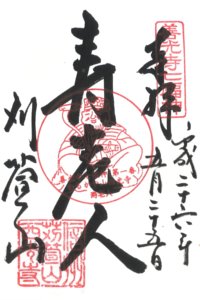 善光寺七福神
奉拝
平成二十六年
五月二十五日
寿老人
刈萱山